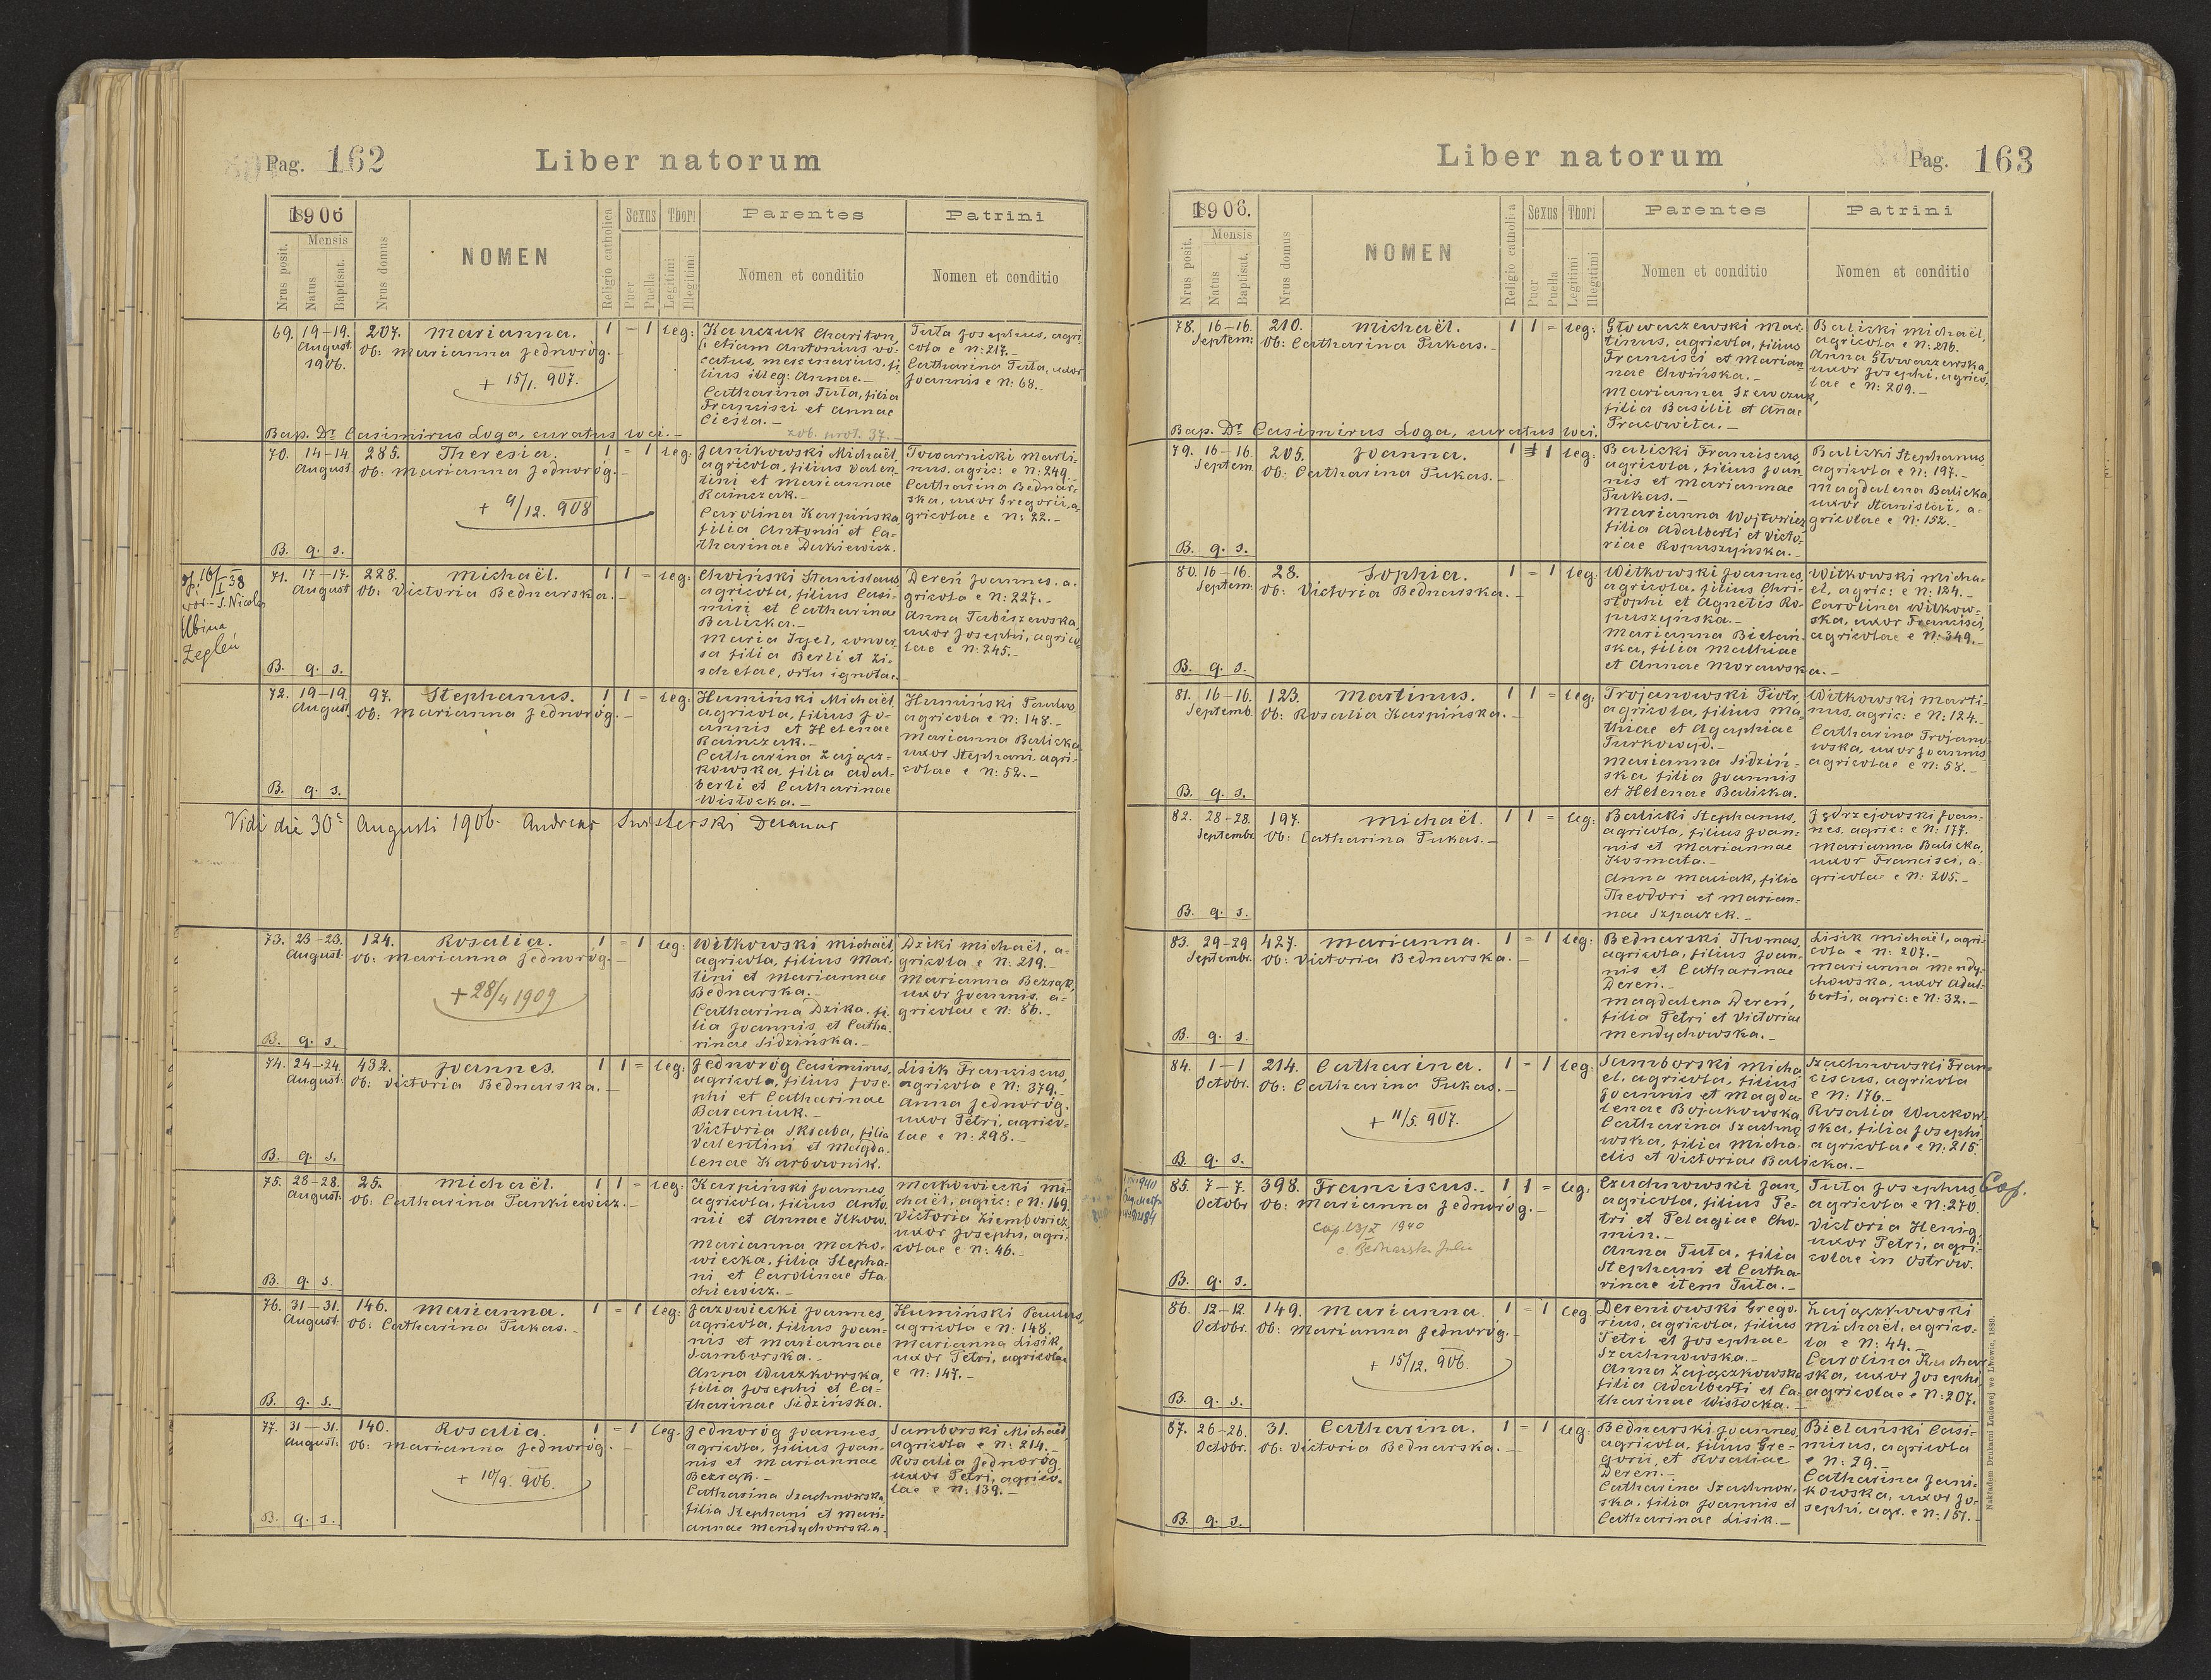 Pag. 162
Liber natorum
1906
Nrus posit.
Mensis
Natus
Baptisat.
Nrus domus
NOMEN
Religio catholica
Sexus
Puer
Puella
Thori
Legitimi
Illegitimi
Parentes
Nomen et conditio
Patrini
Nomen et conditio
69. 19-19. August. 1906. 207. Marianna. 1 - 1 leg:
Ob: Marianna Jednoróg.-
+ 15/1. 907.
Kauczuk Chariton,
etiam Antonius vo-
catus, mercenarius, fi-
lius illeg: Annae.-
Catharina Tuta, filia
Francisci et Annae
Cieśla.-
Tuta Josephus, agri-
cola e N: 217.-
Catharina Tuta, uxor
Joannis e N: 68.-
zob. prot. 37.-
Bap. Dr Casimirus Loga, curatus loci.-
70. 14-14. August. 285. Theresia. 1 - 1 leg:
Ob: Marianna Jednoróg.-
+ 9/12. 908
Janikowski Michaël,
agricola, filius Valen-
tini et Mariannae
Rainczak.-
Carolina Karpińska,
filia Antonii et Ca-
tharinae Dukiewicz.
Towarnicki Marti-
nus, agric: e N: 249.
Catharina Bednar-
ska, uxor Gregorii, a-
gricolae e N: 22.-
B. q. s.
16/I 38
S. Nicola
Albina
Żegleń
71. 17-17. August 228. Michaël. 1 1 - leg:
Ob: Victoria Bednarska.-
Chwiński Stanislaus,
agricola, filius Casi-
miri et Catharinae
Balicka.-
Maria Igel, conver-
sa filia Berli et Zi-
schelae, ortu ignotae.-
Dereń Joannes, a-
gricola e N: 227.-
Anna Tabiszewska,
uxor Josephi, agrico-
lae e N: 245.-
B. q. s.
72. 19-19. August. 97. Stephanus. 1 1 - leg:
Ob: Marianna Jednoróg.-
Humiński Michaël,
agricola, filius Jo-
annis et Helenae
Rainczak.-
Catharina Zającz-
kowska filia Adal-
berti et Catharinae
Wisłocka.-
Humiński Paulus,
agricola e N: 148.-
Marianna Balicka,
uxor Stephani, agri-
colae e N: 52.-
B. q. s.
Vidi die 30 Augusti 1906. Andreas Swisterski Decanus
73. 23-23. August. 124. Rosalia. 1 - 1 leg:
Ob: Marianna Jednoróg.-
+ 28/4 1909
Witkowski Michaël,
agricola, filius Mar-
tini et Mariannae
Bednarska.-
Catharina Dzika, fi-
lia Joannis et Catha-
rinae Sidzińska.-
Dziki Michaël, a-
gricola e N: 219.-
Marianna Bezrąk,
uxor Joannis, a-
gricolae e N: 86.-
B. q. s.
74. 24-24. August. 432. Joannes. 1 1 - leg:
Ob: Victoria Bednarska.-
Jednoróg Casimirus,
agricola, filius Jose-
phi et Catharinae
Baraniuk.-
Victoria Skraba, filia
Valentini et Magda-
lenae Karbownik.
Lisik Franciscus,
agricola e N: 379.-
Anna Jednoróg,
uxor Petri, agrico-
lae e N: 298.-
B. q. s.
75. 28-28. August. 25. Michaël. 1 1 - leg:
Ob: Catharina Pankiewicz.-
Karpiński Joannes
agricola, filius Anto-
nii et Annae Ilkow.
Marianna Mako-
wiecka, filia Stepha-
ni et Carolinae Sta-
chiewicz.-
Makowiecki Mi-
chaël, agric: e N: 169.
Victoria Ziembowicz,
uxor Josephi, agri-
colae e N: 46.-
B. q. s.
76. 31-31. August. 146. Marianna. 1 - 1 leg:
Ob: Catharina Pukas.-
Jazowiecki Joannes,
agricola, filius Joan-
nis et Mariannae
Samborska.-
Anna Wuczkowska,
filia Josephi et Ca-
tharinae Sidzińska.
Humiński Paulus,
agricola e N: 148.
Marianna Lisik,
uxor Petri, agricolae
e N: 147.-
B. q. s.
77. 31-31. August: 140. Rosalia. 1 - 1 leg.
Ob: Marianna Jednoróg.-
+ 10/9. 906.
Jednoróg Joannes,
agricola, filius Joan-
nis et Mariannae
Bezrąk.-
Catharina Szachnowska,
filia Stephani et Mari-
annae Mendychowska.
Samborski Michaël,
agricola e N: 214.-
Rosalia Jednoróg,
uxor Petri, agrico-
lae e N: 139.-
B. q. s.
Liber natorum
Pag. 163
1906.
Nrus posit.
Mensis
Natus
Baptisat.
Nrus domus
NOMEN
Religio catholica
Sexus
Puer
Puella
Thori
Legitimi
Illegitimi
Parentes
Nomen et conditio
Patrini
Nomen et conditio
78. 16-16. Septem: 210. Michaël. 1 1 - leg:
Ob: Catharina Pukas.-
Głowaczewski Mar-
tinus, agricola, filius
Francisci et Marian-
nae Chwińska.-
Marianna Szewczuk,
filia Basilii et Anae
Prakowita.-
Balicki Michaël,
agricola e N: 216.
Anna Głowaczewska,
uxor Josephi, agrico-
lae e N: 209.-
Bap. Dr Casimirus Loga, curatus loci.
79. 16-16. Septem. 205. Joanna. 1 1 leg:
Ob: Catharina Pukas.-
Balicki Franciscus,
agricola, filius Joan-
nis et Mariannae
Pukas.-
Marianna Wojtowicz,
filia Adalberti et Victo-
riae Ropuszyńska.-
Balicki Stephanus,
agricola e N: 197.-
Magdalena Balicka,
uxor Stanislai, a-
gricolae e N: 152.-
B. q. s.
80. 16-16. Septem. 28. Sophia. 1 - 1 leg.
Ob: Victoria Bednarska.-
Witkowski Joannes,
agricola, filius Chri-
stophi et Agnetis Ro-
puszyńska.-
Marianna Bielań-
ska, filia Mathiae
et Annae Morawska.-
Witkowski Micha-
el, agric: e N: 124.-
Carolina Witkow-
ska, uxor Francisci,
agricolae e N: 349.-
B. q. s.
81. 16-16. Septemb. 123. Martinus. 1 1 - leg:
Ob: Rosalia Karpińska.-
Trojanowski Piotr,
agricola, filius Ma-
thiae et Agaphiae
Turkowyd.-
Marianna Sidziń-
ska filia Joannis
et Helenae Balicka.
Witkowski Marti-
nus, agric: e N: 124.-
Catharina Trojano-
wska, uxor Joannis
agricolae e N: 58.-
B. q. s.
82. 28-28. Septembr. 197. Michaël. 1 1 - leg:
Ob: Catharina Pukas.-
Balicki Stephanus,
agricola, filius Joan-
nis et Mariannae
Kosmata.-
Anna Maciak, filia
Theodori et Marian-
nae Szpaczek.-
Jędrzejowski Joan-
nes, agric: e N: 177.
Marianna Balicka,
uxor Francisci, a-
gricolae e N: 205.-
B. q. s.
83. 29-29 Septembr. 427. Marianna. 1 - 1 leg:
Ob: Victoria Bednarska.-
Bednarski Thomas,
agricola, filius Joan-
nis et Catharinae
Dereń.-
Magdalena Dereń,
filia Petri et Victoriae
Mendychowska.-
Lisik Michaël, agri-
cola e N: 207.-
Marianna Mendy-
chowska, uxor Adal-
berti, agric: e N: 32.-
B. q. s.
84. 1-1 Octobr. 214. Catharina. 1 - 1 leg:
Ob: Catharina Pukas.-
+ 11/5. 907.
Samborski Micha-
el, agricola, filius
Joannis et Magda-
lenae Bojakowska.
Catharina Szachno-
wska, filia Micha-
elis et Victoriae Balicka.-
Szachnowski Fran-
ciscus, agricola
e N: 176.-
Rosalia Wuckow-
ska, filia Josephi
agricolae e N: 215.
B. q. s.
85. 7-7. Octobr. 398. Franciscus.- 1 1 - leg:
Ob: Marianna Jednoróg.-
cap. 1940
c. Bednarska Julia
Czachnowski Jan,
agricola, filius Pe-
tri et Pelagiae Cho-
min.-
Anna Tuta, filia
Stephani et Catha-
rinae item Tuta.-
Tuta Josephus,
agricola e N: 270.
Victoria Henig,
uxor Petri, agri-
colae in Ostrów.
Cop.
B. q. s.
86. 12-12. Octobr. 149. Marianna. 1 - 1 leg.
Ob: Marianna Jednoróg.-
+ 15/12. 906.
Dereniowski Grego-
rius, agricola, filius
Petri et Josephae
Szachnowska.-
Anna Zajączkowska
filia Adalberti et Ca-
tharinae Wisłocka.-
Zajączkowski
Michaël, agrico-
la e N: 44.
Carolina Kuchar-
ska, uxor Josephi,
agricolae e N: 207.
B. q. s.
87. 26-26. Octobr. 31. Catharina. 1 - 1 leg:
Ob: Victoria Bednarska.-
Bednarski Joannes,
agricola, filius Gre-
gorii, et Rosaliae
Dereń.-
Catharina Szachnow-
ska, filia Joannis et
Catharinae Lisik.-
Bielański Casi-
mirus, agricola
e N: 29.-
Catharina Jani-
kowska, uxor Jo-
sephi, agr. e N: 151.-
B. q. s.
Nakładem Drukarni Ludowej we Lwowie, 1889.